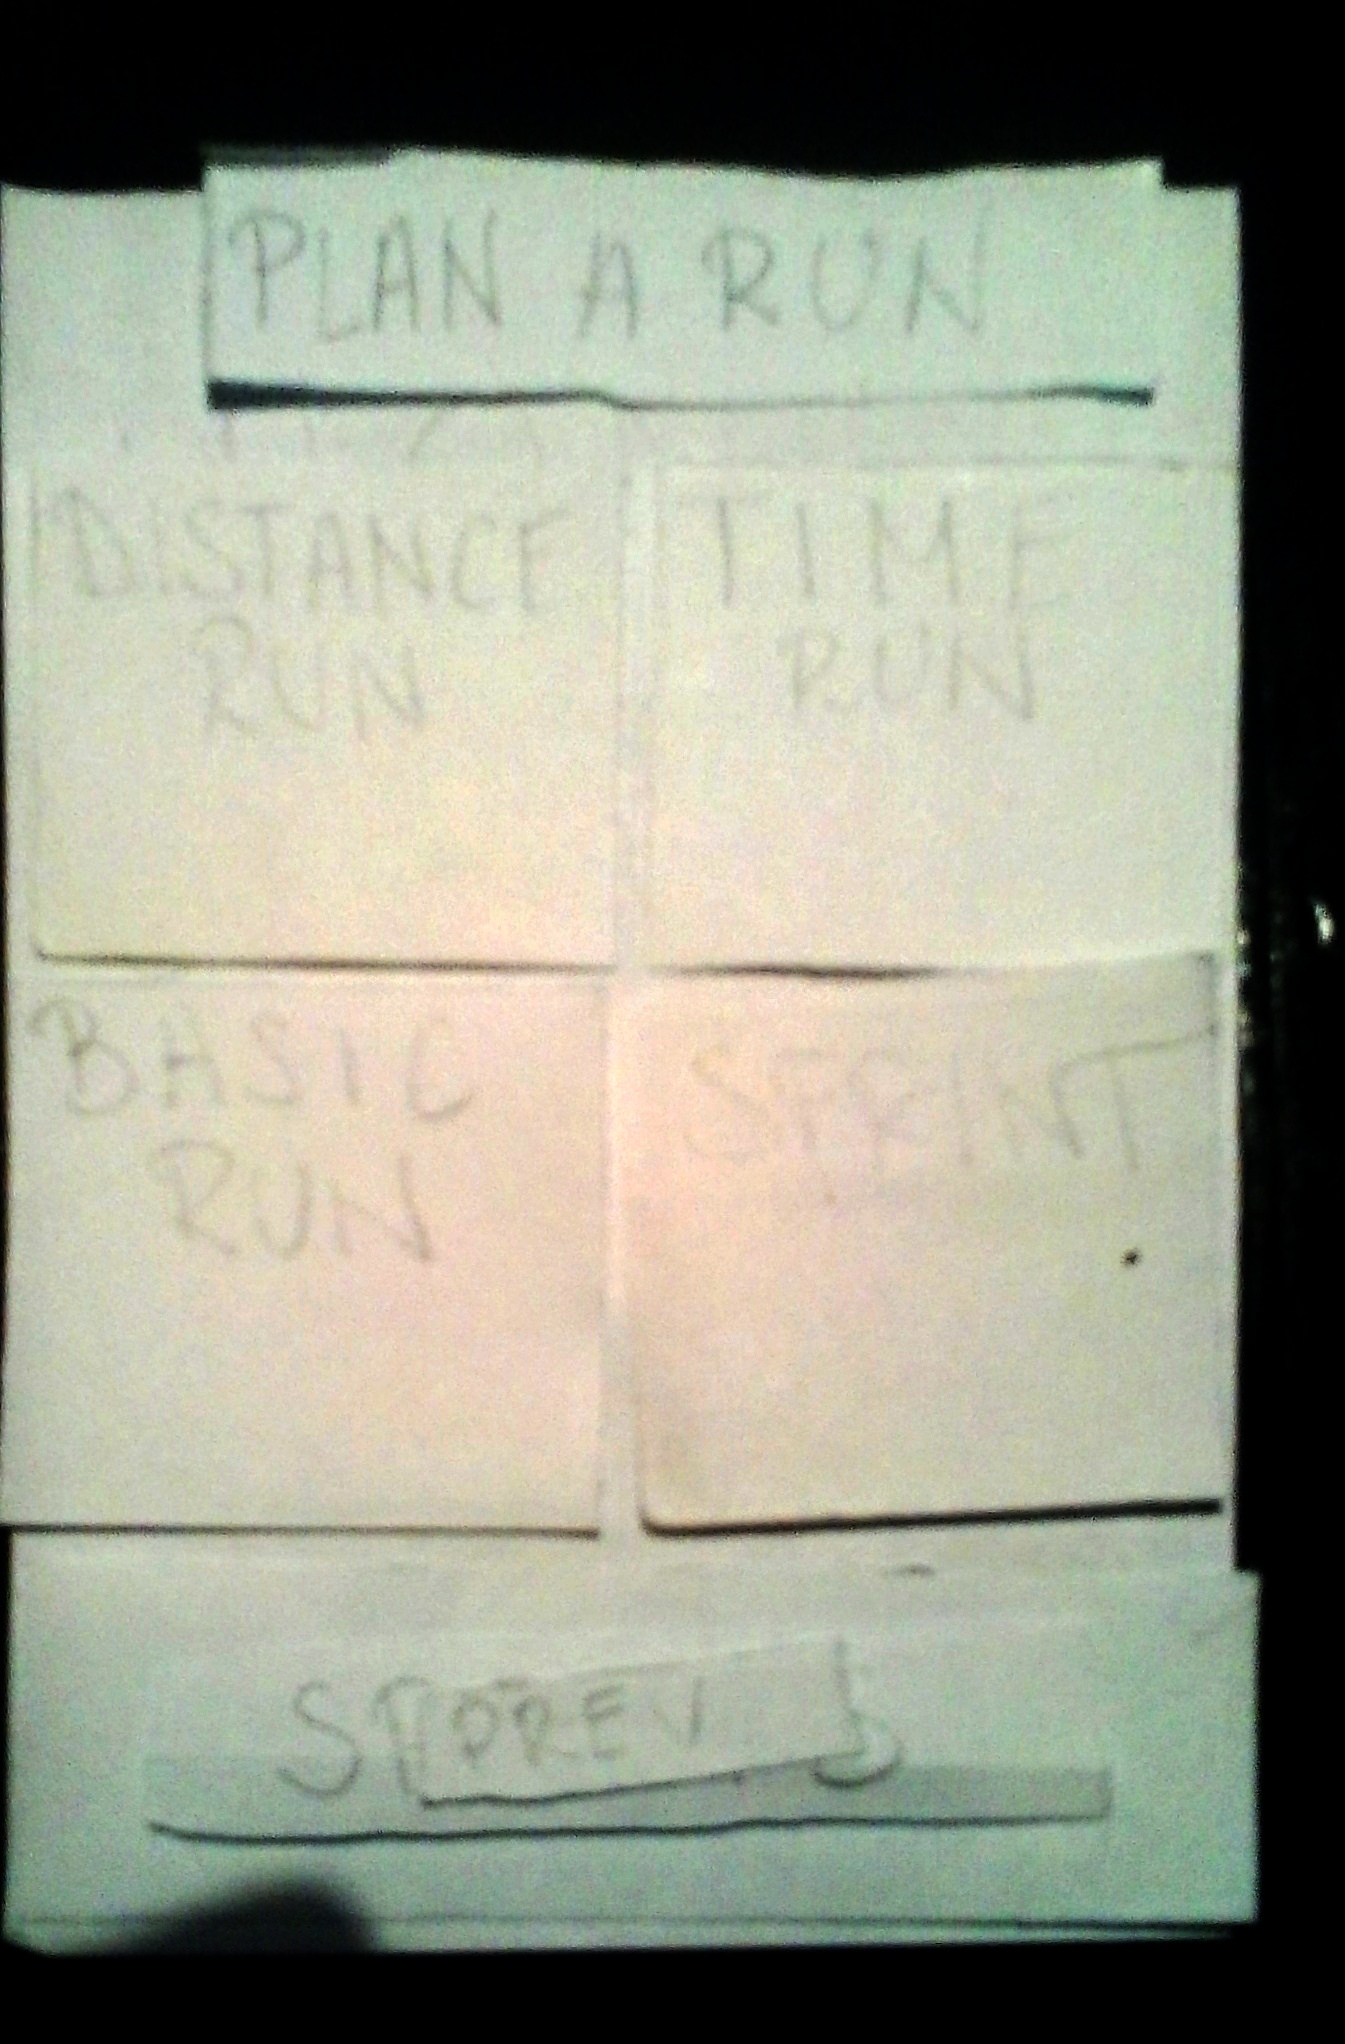 PLAN A RUN
DISTANCE
RUN
TIME
RUN
BASIC
RUN
SPRINT